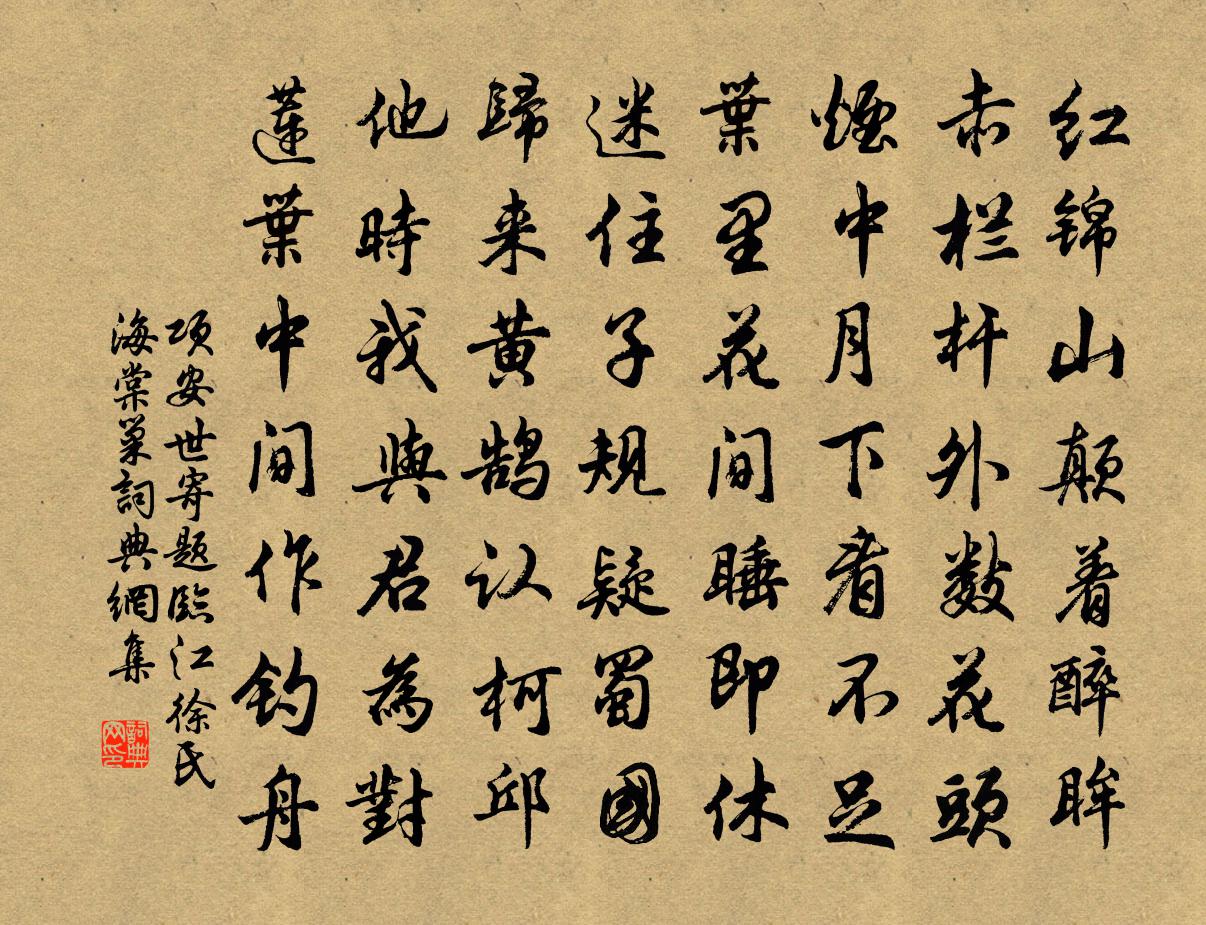 红锦山颠着醉眸
赤栏杆外数花頭
煙中月下看不足
葉里花间睡即休
迷住子规疑蜀國
歸来黄鹄认柯邱
他時我與君為對
蓮葉中间作钓舟
项安世寄题臨江徐氏
海棠巢詞典網集
詞典
网印